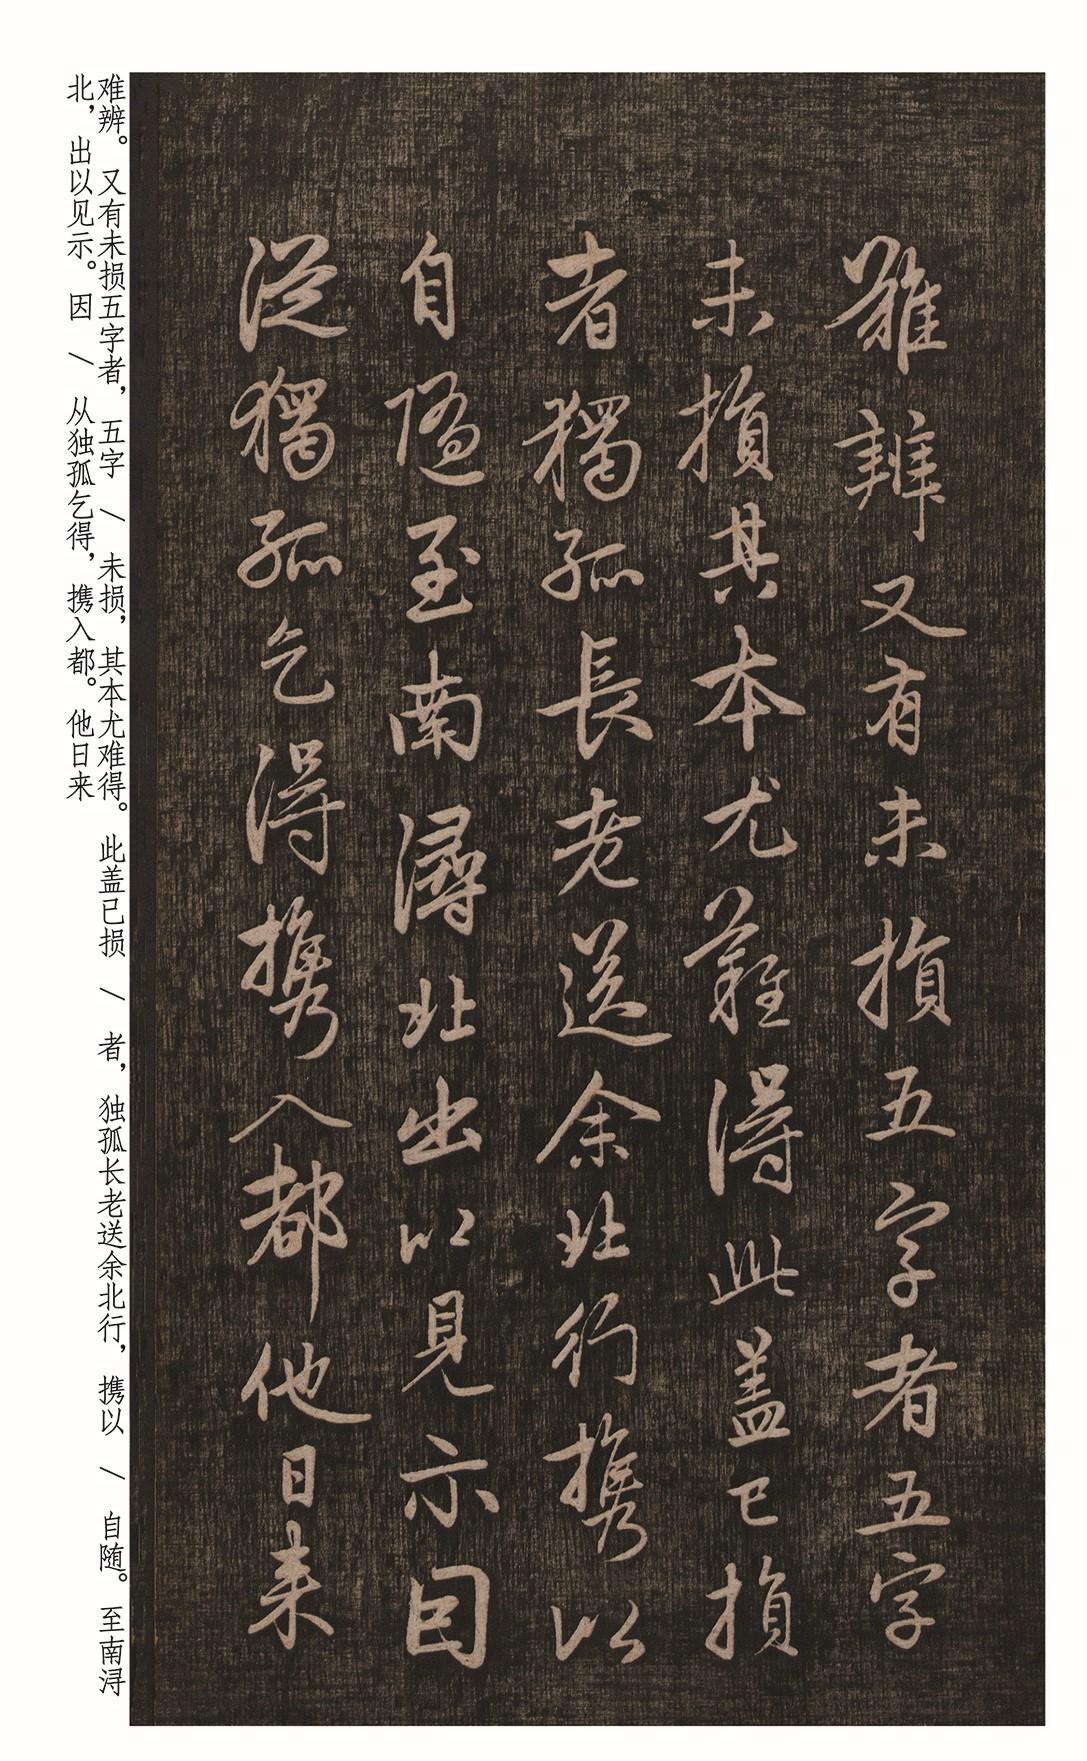 難辨又有未損五字者五字
未損其本尤難得此盖已損
者獨孤長老送余北行携以
自随至南潯北出以見示因
從獨孤乞得携入都他日来
难辨。又有未损五字者，五字 / 未损，其本尤难得。此盖已损 / 者，独孤长老送余北行，携以 / 自随。至南浔
北，出以见示。因 / 从独孤乞得，携入都。他日来